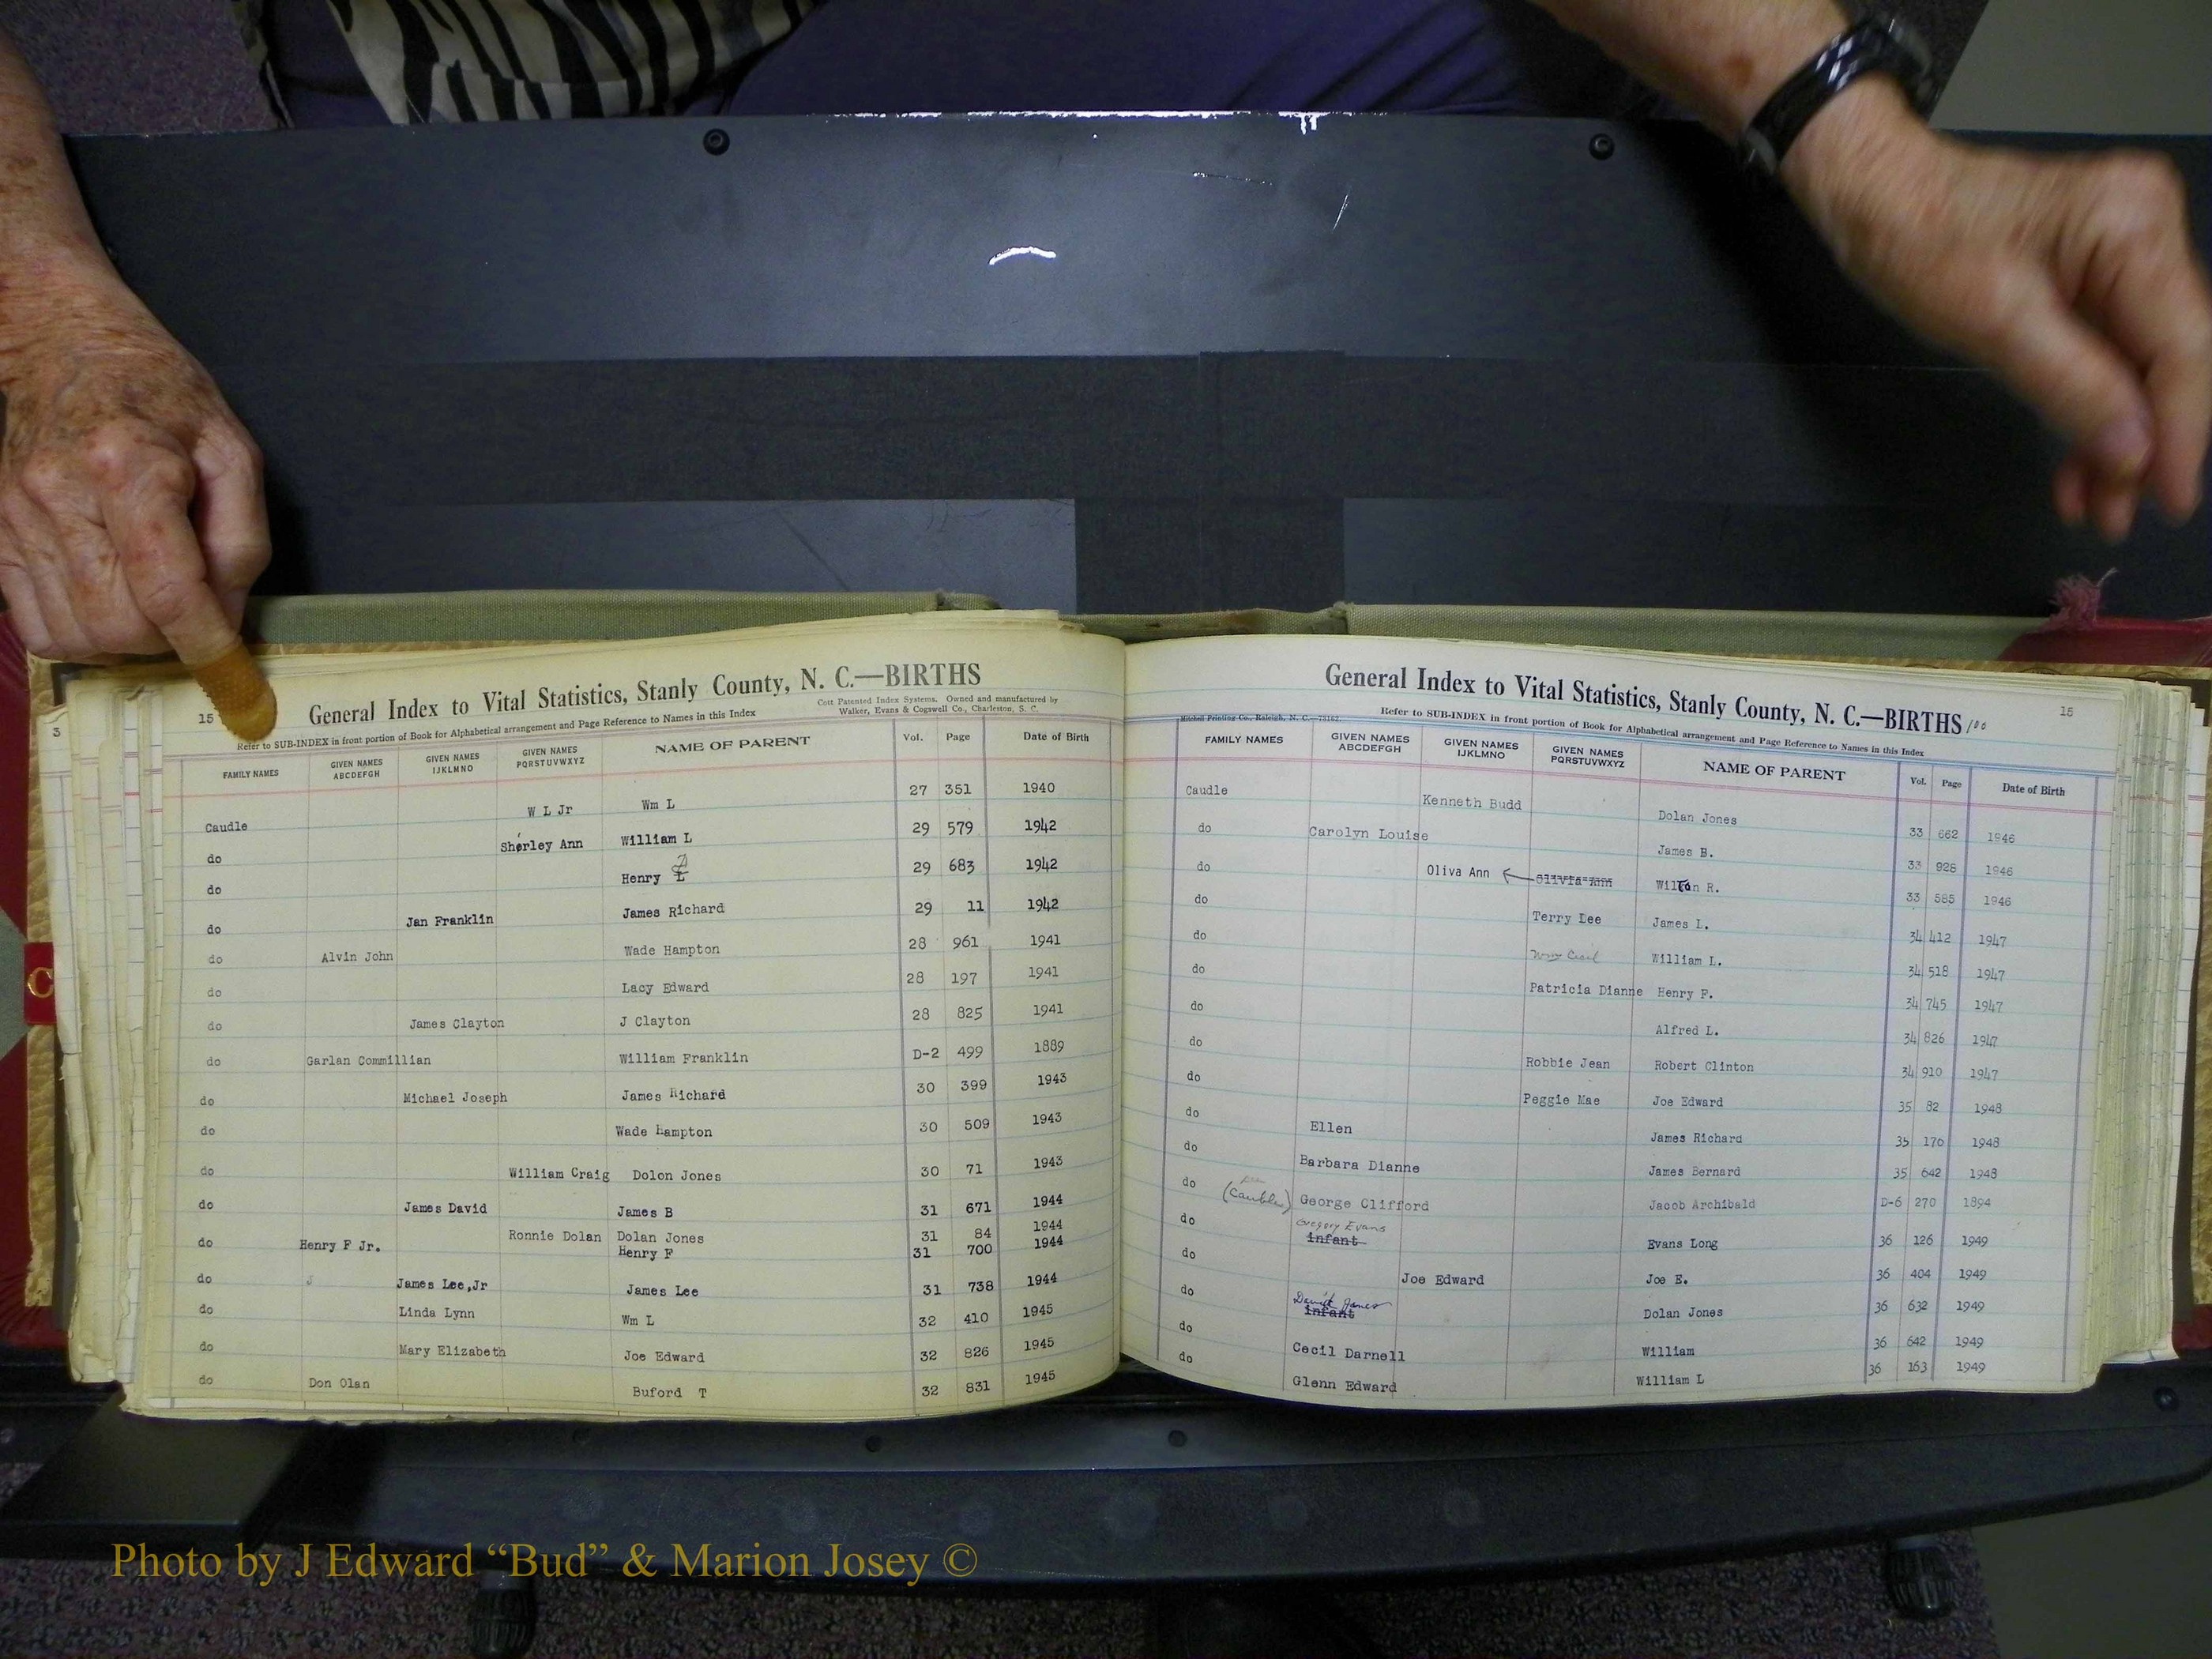 15
General Index to Vital Statistics, Stanly County, N. C.—BIRTHS
Cott Patented Index Systems. Owned and manufactured by
Walker, Evans & Cogswell Co., Charleston, S. C.
Refer to SUB-INDEX in front portion of Book for Alphabetical arrangement and Page Reference to Names in this Index
FAMILY NAMES GIVEN NAMES ABCDEFGH GIVEN NAMES IJKLMNO GIVEN NAMES PQRSTUVWXYZ NAME OF PARENT Vol. Page Date of Birth
Caudle W L Jr Wm L 27 351 1940
do Sherley Ann William L 29 579 1942
do Henry 29 683 1942
do Jan Franklin James Richard 29 11 1942
do Alvin John Wade Hampton 28 961 1941
do Lacy Edward 28 197 1941
do James Clayton J Clayton 28 825 1941
do Garlan Commillian William Franklin D-2 499 1889
do Michael Joseph James Richard 30 399 1943
do Wade Hampton 30 509 1943
do William Craig Dolon Jones 30 71 1943
do James David James B 31 671 1944
Ronnie Dolan Dolan Jones 31 84 1944
do Henry F Jr. Henry F 31 700 1944
do J James Lee,Jr James Lee 31 738 1944
do Linda Lynn Wm L 32 410 1945
do Mary Elizabeth Joe Edward 32 826 1945
do Don Olan Buford T 32 831 1945
3
C
General Index to Vital Statistics, Stanly County, N. C.—BIRTHS 100
15
Mitchell Printing Co., Raleigh, N. C.—75162.
Refer to SUB-INDEX in front portion of Book for Alphabetical arrangement and Page Reference to Names in this Index
FAMILY NAMES GIVEN NAMES ABCDEFGH GIVEN NAMES IJKLMNO GIVEN NAMES PQRSTUVWXYZ NAME OF PARENT Vol. Page Date of Birth
Caudle Kenneth Budd Dolan Jones 33 662 1946
do Carolyn Louise James B. 33 928 1946
do Oliva Ann Olivia Ann Wilton R. 33 585 1946
do Terry Lee James L. 34 412 1947
do Cecil William L. 34 518 1947
do Patricia Dianne Henry F. 34 745 1947
do Alfred L. 34 826 1947
do Robbie Jean Robert Clinton 34 910 1947
do Peggie Mae Joe Edward 35 82 1948
do Ellen James Richard 35 170 1948
do Barbara Dianne James Bernard 35 642 1948
do (Caubles) George Clifford Jacob Archibald D-6 270 1894
Gregory Evans
do infant Evans Long 36 126 1949
do Joe Edward Joe E. 36 404 1949
David James
do infant Dolan Jones 36 632 1949
do Cecil Darnell William 36 642 1949
do Glenn Edward William L 36 163 1949
Photo by J Edward “Bud” & Marion Josey ©